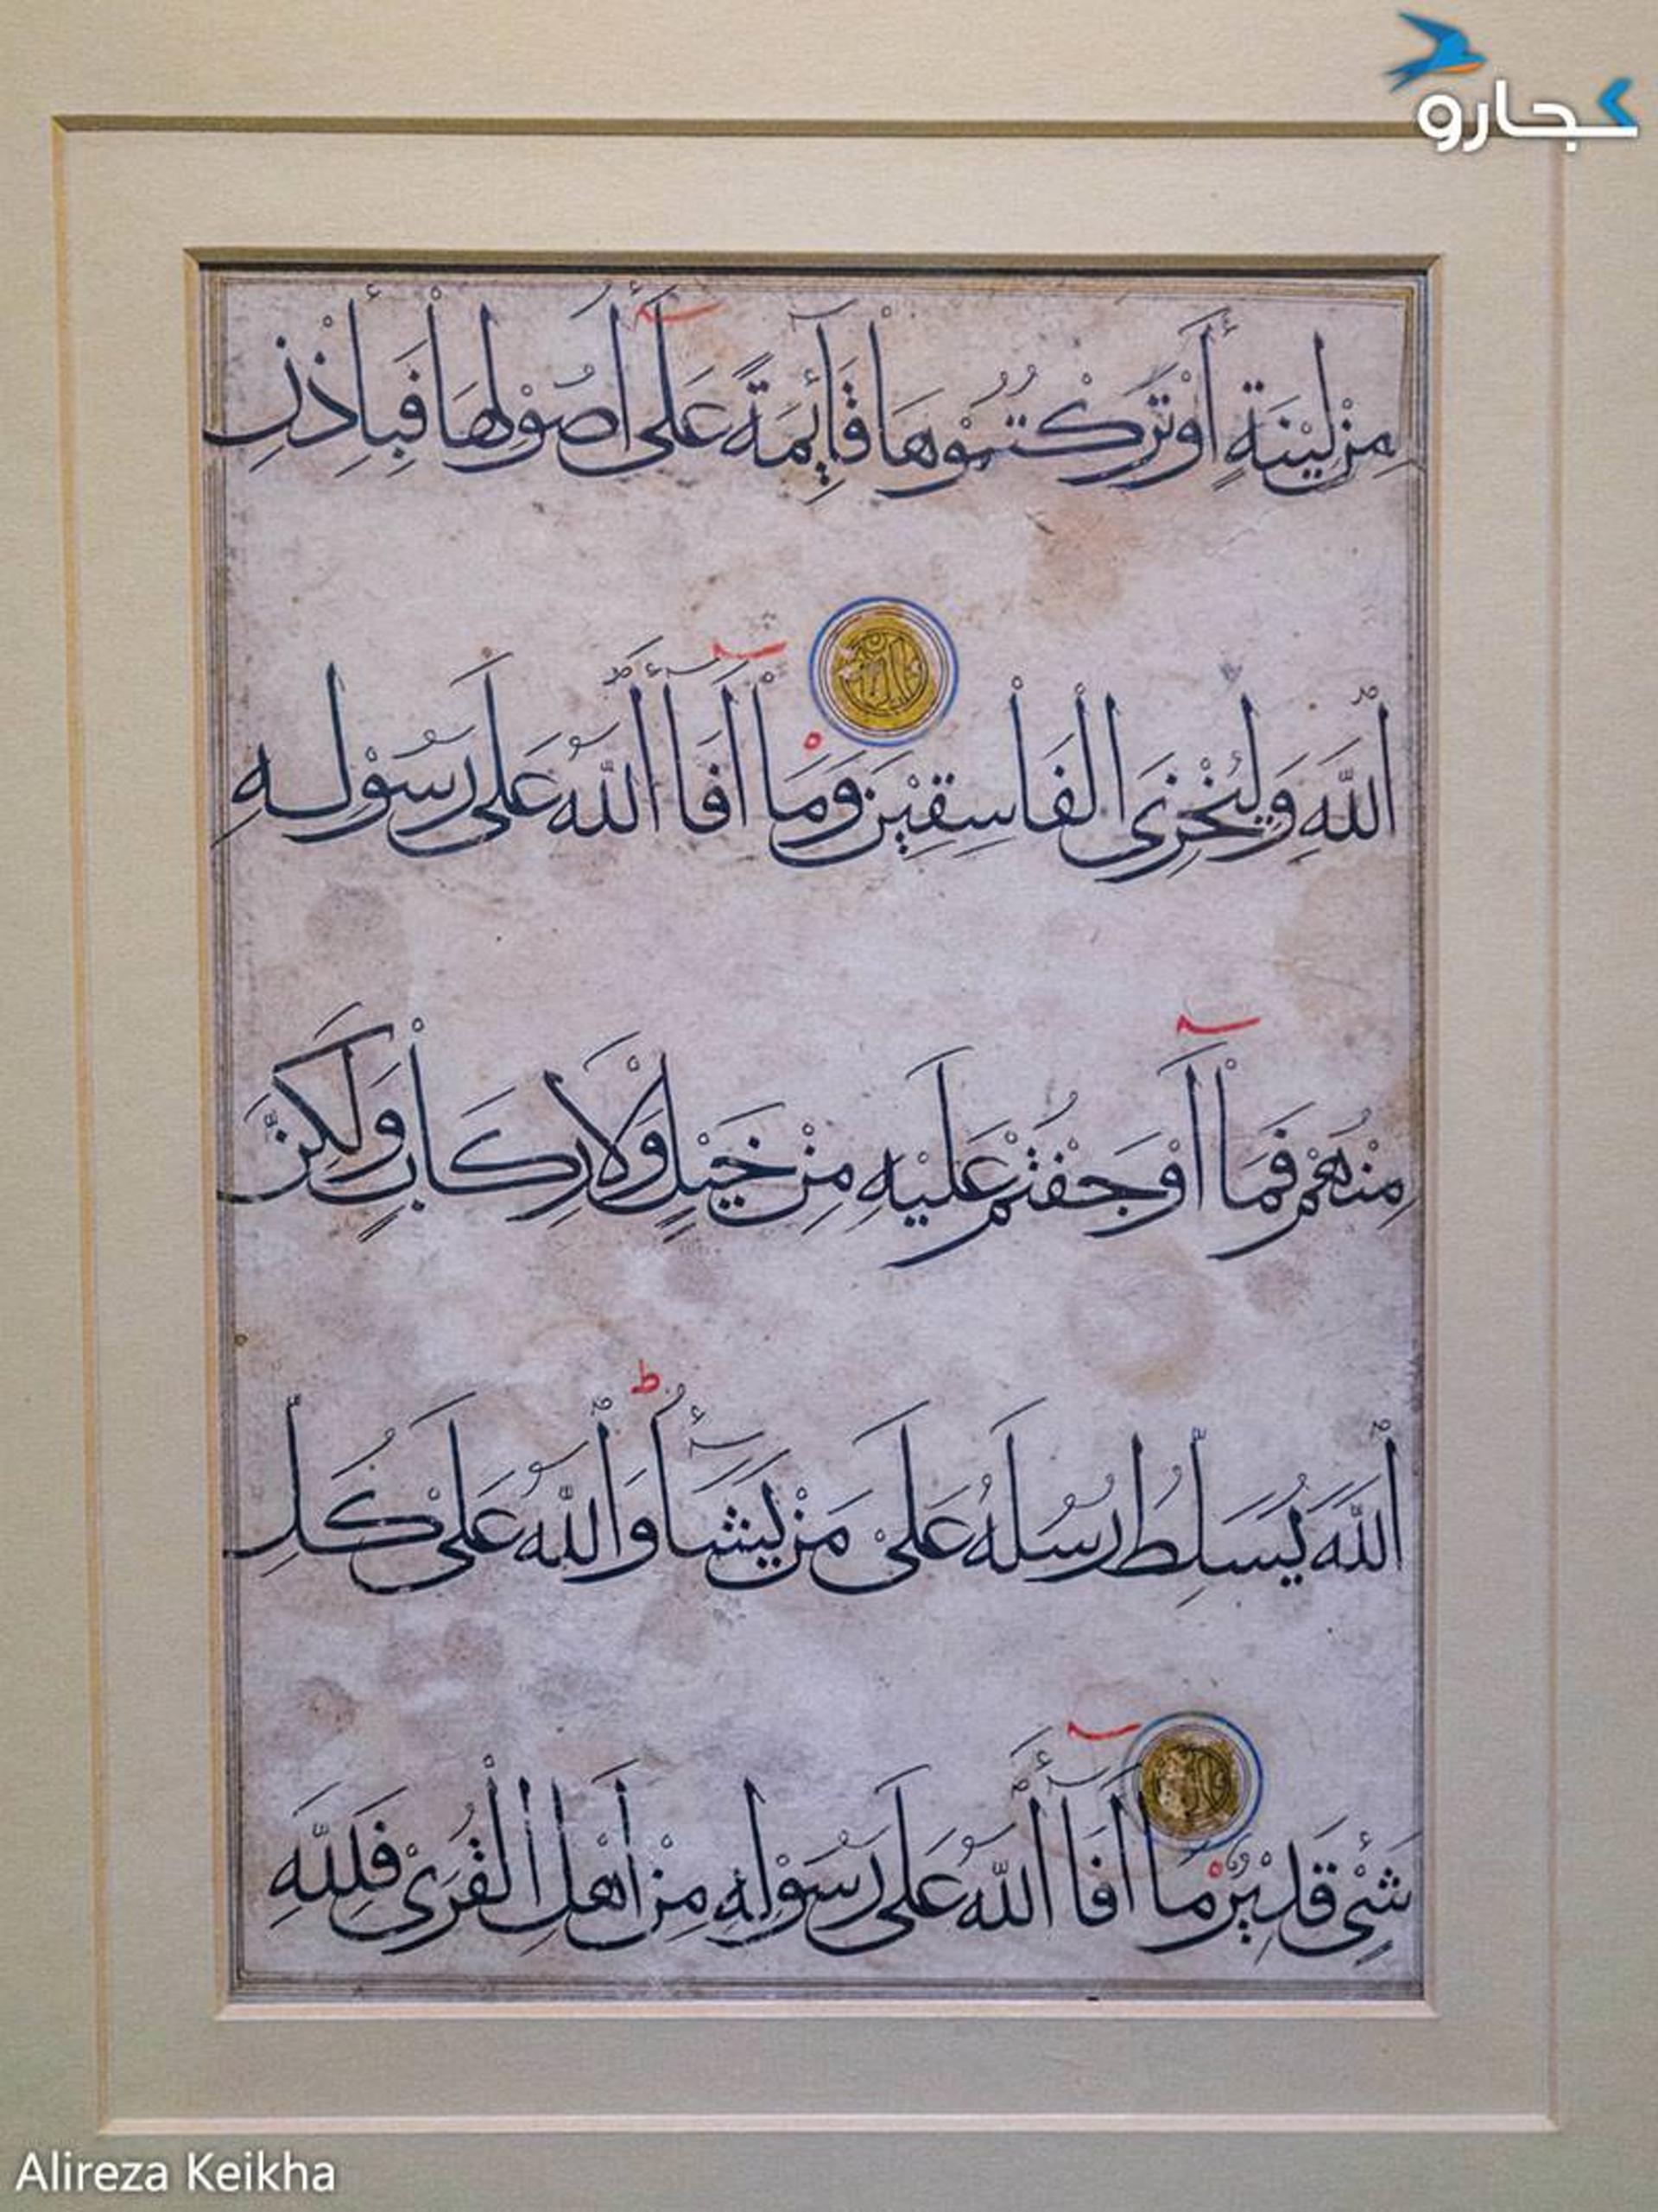 کجارو
مِنْ لِيْنَةٍ أَوْ تَرَكْتُمُوْهَا قَآئِمَةً عَلَىٰٓ أُصُوْلِهَا فَبِإِذْنِ
اللّٰهِ وَلِيُخْزِىَ الْفَاسِقِيْنَ وَمَآ أَفَآءَ اللّٰهُ عَلَىٰ رَسُوْلِهِ
مِنْهُمْ فَمَآ أَوْجَفْتُمْ عَلَيْهِ مِنْ خَيْلٍ وَلَا رِكَابٍ وَلَٰكِنَّ
اللّٰهَ يُسَلِّطُ رُسُلَهُ عَلَىٰ مَنْ يَشَآءُ ط وَاللّٰهُ عَلَىٰ كُلِّ
شَىْءٍ قَدِيْرٌ مَآ أَفَآءَ اللّٰهُ عَلَىٰ رَسُوْلِهِ مِنْ أَهْلِ الْقُرَىٰ فَلِلّٰهِ
Alireza Keikha